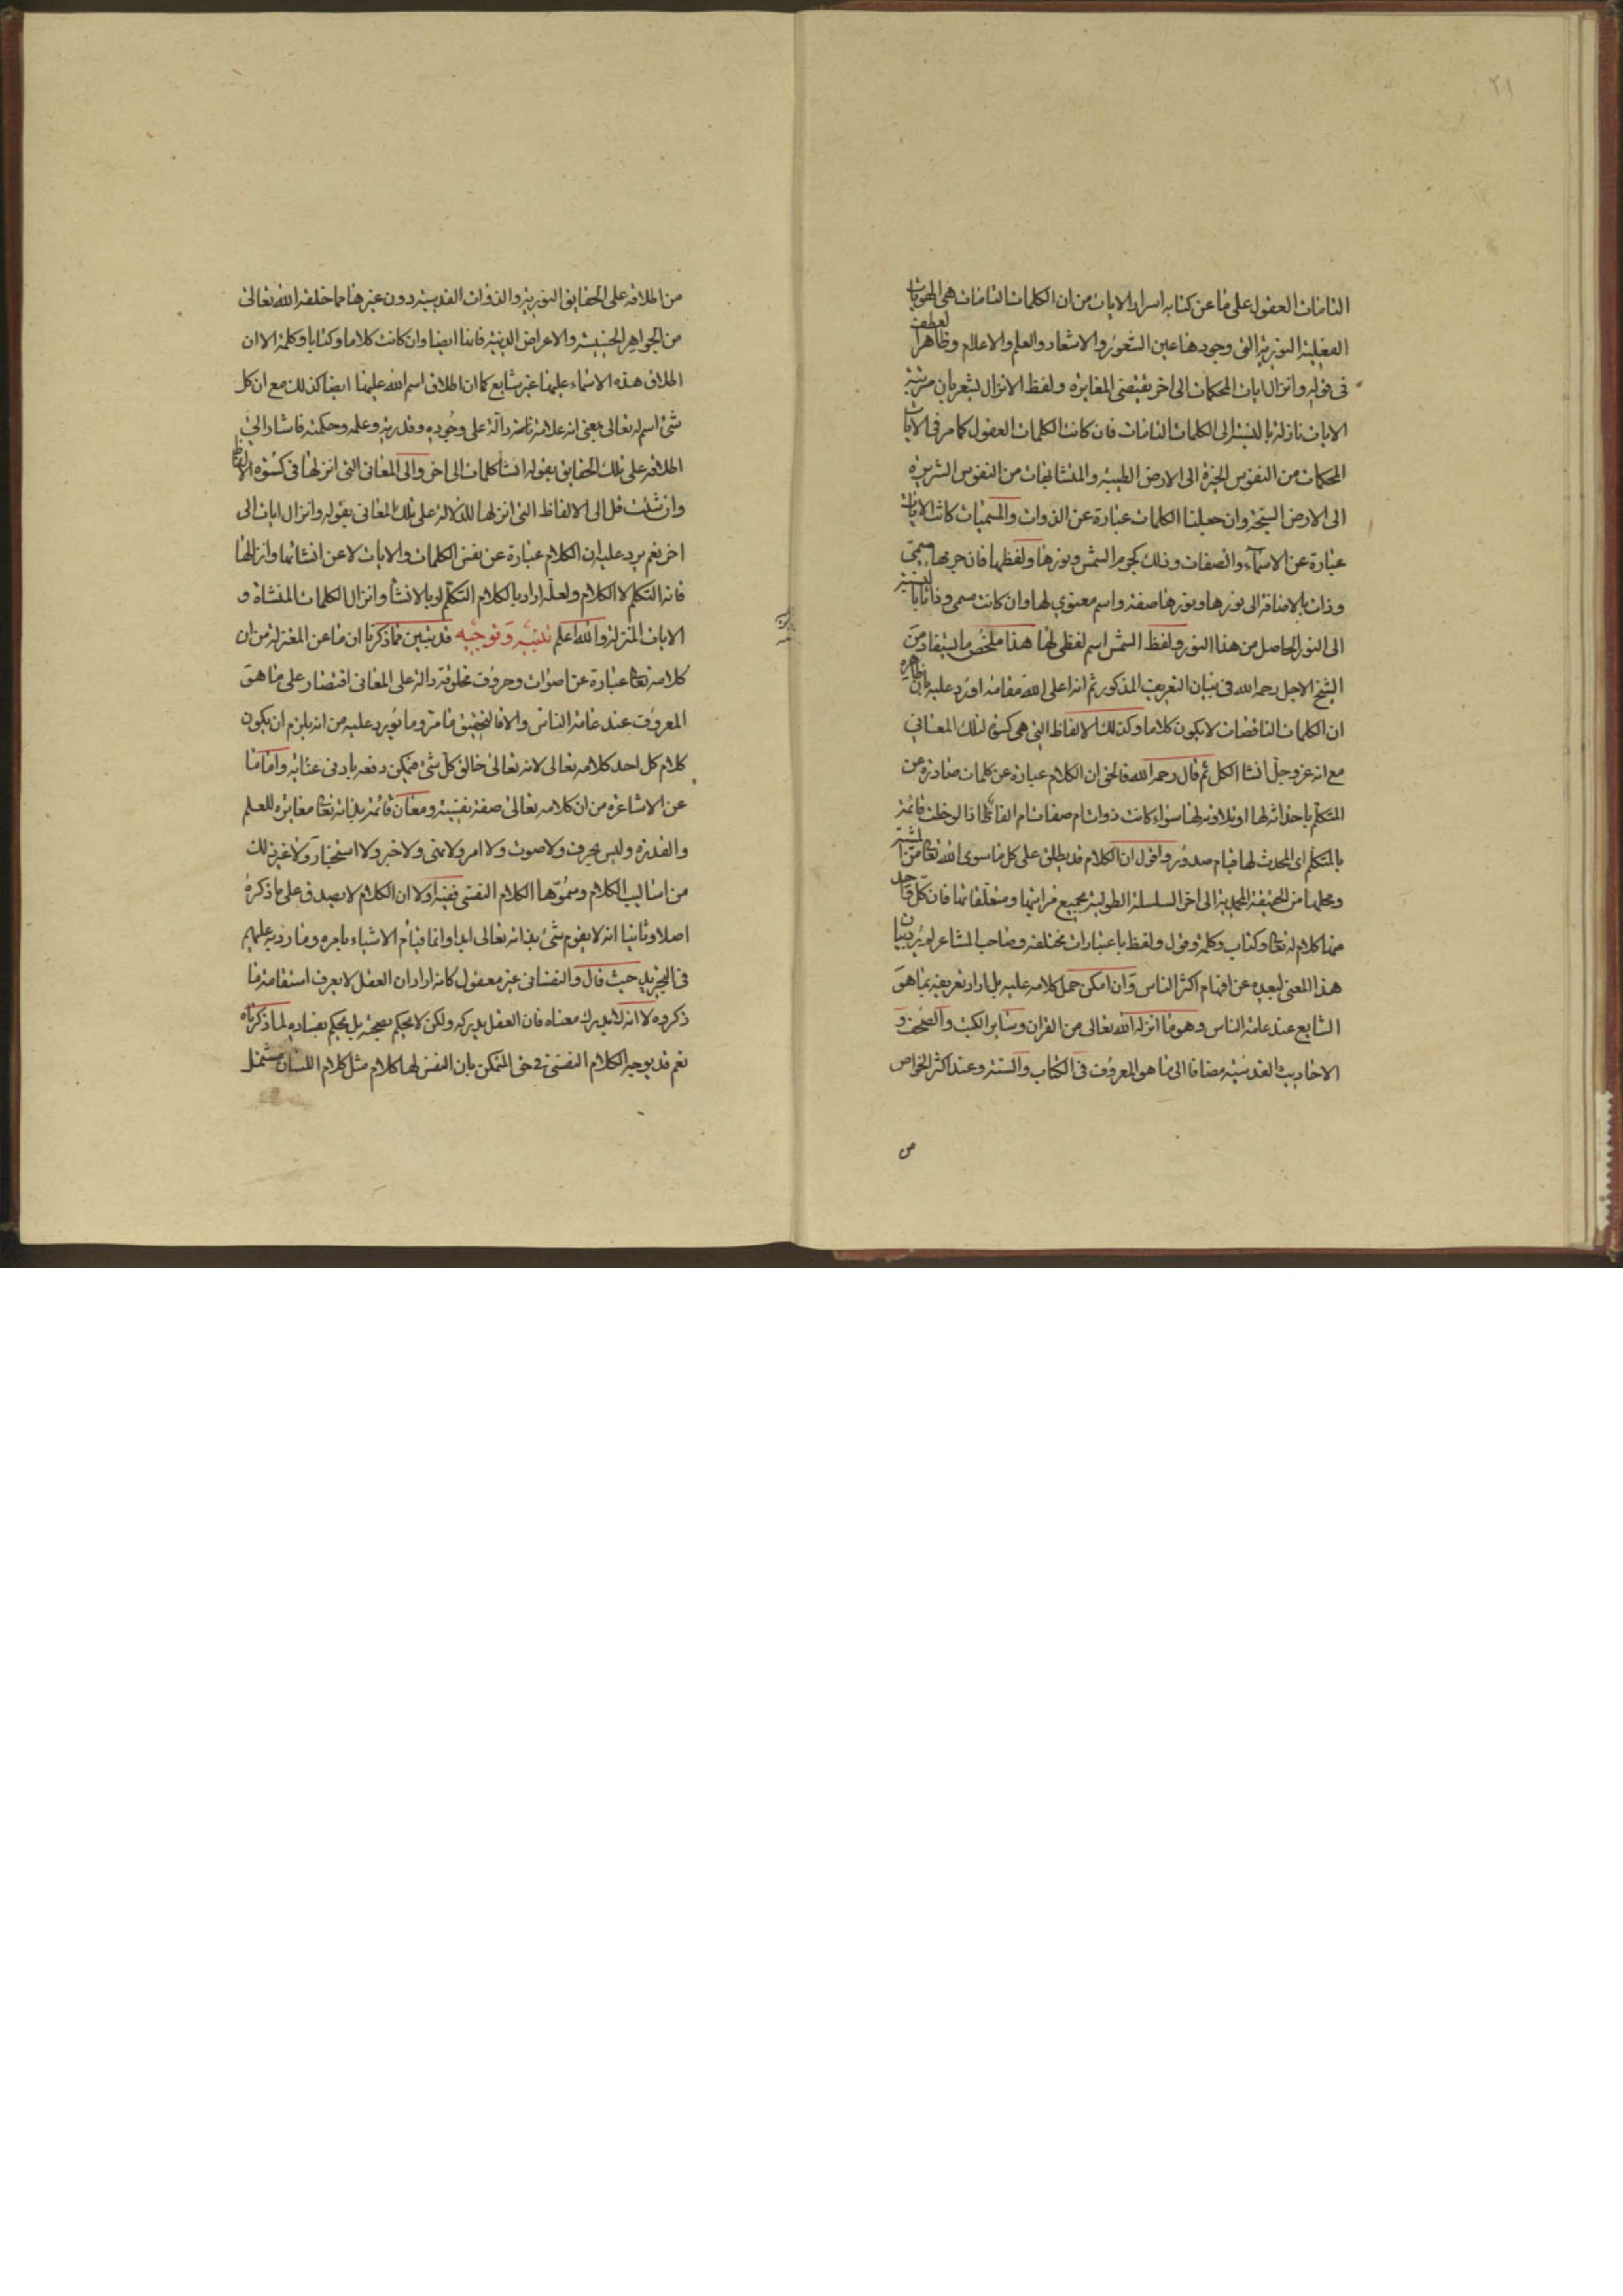 ٢١
التامات العقول على ما عن كتابه اسرار الايات من ان الكلمات التامات هى الهويات
العقلية النورية التى وجودها عين الشعور والاشعار والعلم والاعلام وظاهر العطف
فى قوله وانزال ايات المحكمات الى اخر يقتضى المغايرة ولفظ الانزال يشعر بان مرتبة
الايات نازلة بالنسبة الى الكلمات التامات فان كانت الكلمات العقول كما مر فى الايات
المحكمات من النفوس الخيرة الى الارض الطيبة والمتشابهات من النفوس الشريرة
الى الارض السبخة وان جعلنا الكلمات عبارة عن الذوات والمسميات كانت الايات
عبارة عن الاسماء والصفات وذلك كجرم الشمس ونورها ولفظها فان جرمها مسمى
وذات بالاضافة الى نورها ونورها صفة واسم معنوي لها وان كانت مسمى وذاتا بالنسبة
الى النور الحاصل من هذا النور ولفظ الشمس اسم لفظى لها هذا ملخص ما يستفاد من
الشيخ الاجل رحمه الله فى بيان التعريف المذكور ثم انه اعلى الله مقامه اورد عليه بان ظاهره
ان الكلمات الناقصات لا يكون كلاما وكذلك الالفاظ التى هى كسوة لتلك المعانى
مع انه عز وجل انشا الكل ثم قال رحمه الله فالحق ان الكلام عبارة عن كلمات صادرة عن
المتكلم باحداثه لها او تلاوته لها سواء كانت ذوات ام صفات ام الفاظا اذا لوحظت قائمة
بالمتكلم اى المحدث لها قيام صدور واقول ان الكلام قد يطلق على كل ما سوى الله تعالى من المشية
ومحلها من الحقيقة المحمدية الى اخر السلسلة الطولية بجميع مراتبها ومتعلقاتها فان كل واحد
منها كلام له تعالى وكتاب وكلمة وقول ولفظ باعتبارات مختلفة وصاحب المشاعر لم يرد بيان
هذا المعنى لبعده عن افهام اكثر الناس وان امكن حمل كلامه عليه بل اراد تعريفه بما هو
الشايع عند عامة الناس وهو ما انزله الله تعالى من القران وساير الكتب والصحف و
الاحاديث القدسية مضافا الى ما هو المعروف فى الكتاب والسنة وعند اكثر الخواص
من اطلاقه على الحقايق النورية والذوات القدسية دون غيرها مما خلقه الله تعالى
من الجواهر الخسيسة والاعراض الدنية فانها ايضا وان كانت كلاما وكتابا وكلمة الا ان
اطلاق هذه الاسماء عليها غير شايع كما ان اطلاق اسم الله عليها ايضا كذلك مع ان كل
شئ اسم له تعالى بمعنى انه علامة تامة دالة على وجوده وقدرته وعلمه وحكمته فاشار الى
اطلاقه على تلك الحقايق بقوله انشاء كلمات الى اخر والى المعانى التى انزلها فى كسوة الالفاظ
وان شئت قل الى الالفاظ التى انزلها للدلالة على تلك المعانى بقوله وانزال ايات الى
اخر نعم يرد عليه ان الكلام عبارة عن نفس الكلمات والايات لا عن انشائها وانزالها
فانه التكلم لا الكلام ولعله اراد بالكلام التكلم او بالانشاء وانزال الكلمات المنشاة و
الايات المنزلة والله اعلم تنبيه وتوجيه قد تبين مما ذكرنا ان ما عن المعتزلة من ان
كلامه تعالى عبارة عن اصوات وحروف مخلوقة دالة على المعانى اقتصار على ما هو
المعروف عند عامة الناس والا فالتحقيق ما مر وما يورد عليه من انه يلزم ان يكون
كلام كل احد كلامه تعالى لانه تعالى خالق كل شئ فيمكن دفعه بادنى عناية واما ما
عن الاشاعرة من ان كلامه تعالى صفة نفسية ومعان قائمة بذاته تعالى مغايرة للعلم
والقدرة وليس بحرف ولا صوت ولا امر ولا نهى ولا خبر ولا استخبار ولا غير ذلك
من اساليب الكلام وسموها الكلام النفسى ففيه اولا ان الكلام لا يصدق على ما ذكره
اصلا وثانيا انه لا يقوم شئ بذاته تعالى ابدا وانما قيام الاشياء بامره وما رد به عليهم
فى التجريد حيث قال والنفسانى غير معقول كانه اراد ان العقل لا يعرف استقامة ما
ذكروه لا انه لا يدرك معناه فان العقل يدركه ولكن لا يحكم بصحته بل يحكم بفساده لما ذكرناه
نعم قد يوجه الكلام النفسى فى حق الممكن بان النفس لها كلام مثل كلام اللسان مشتمل